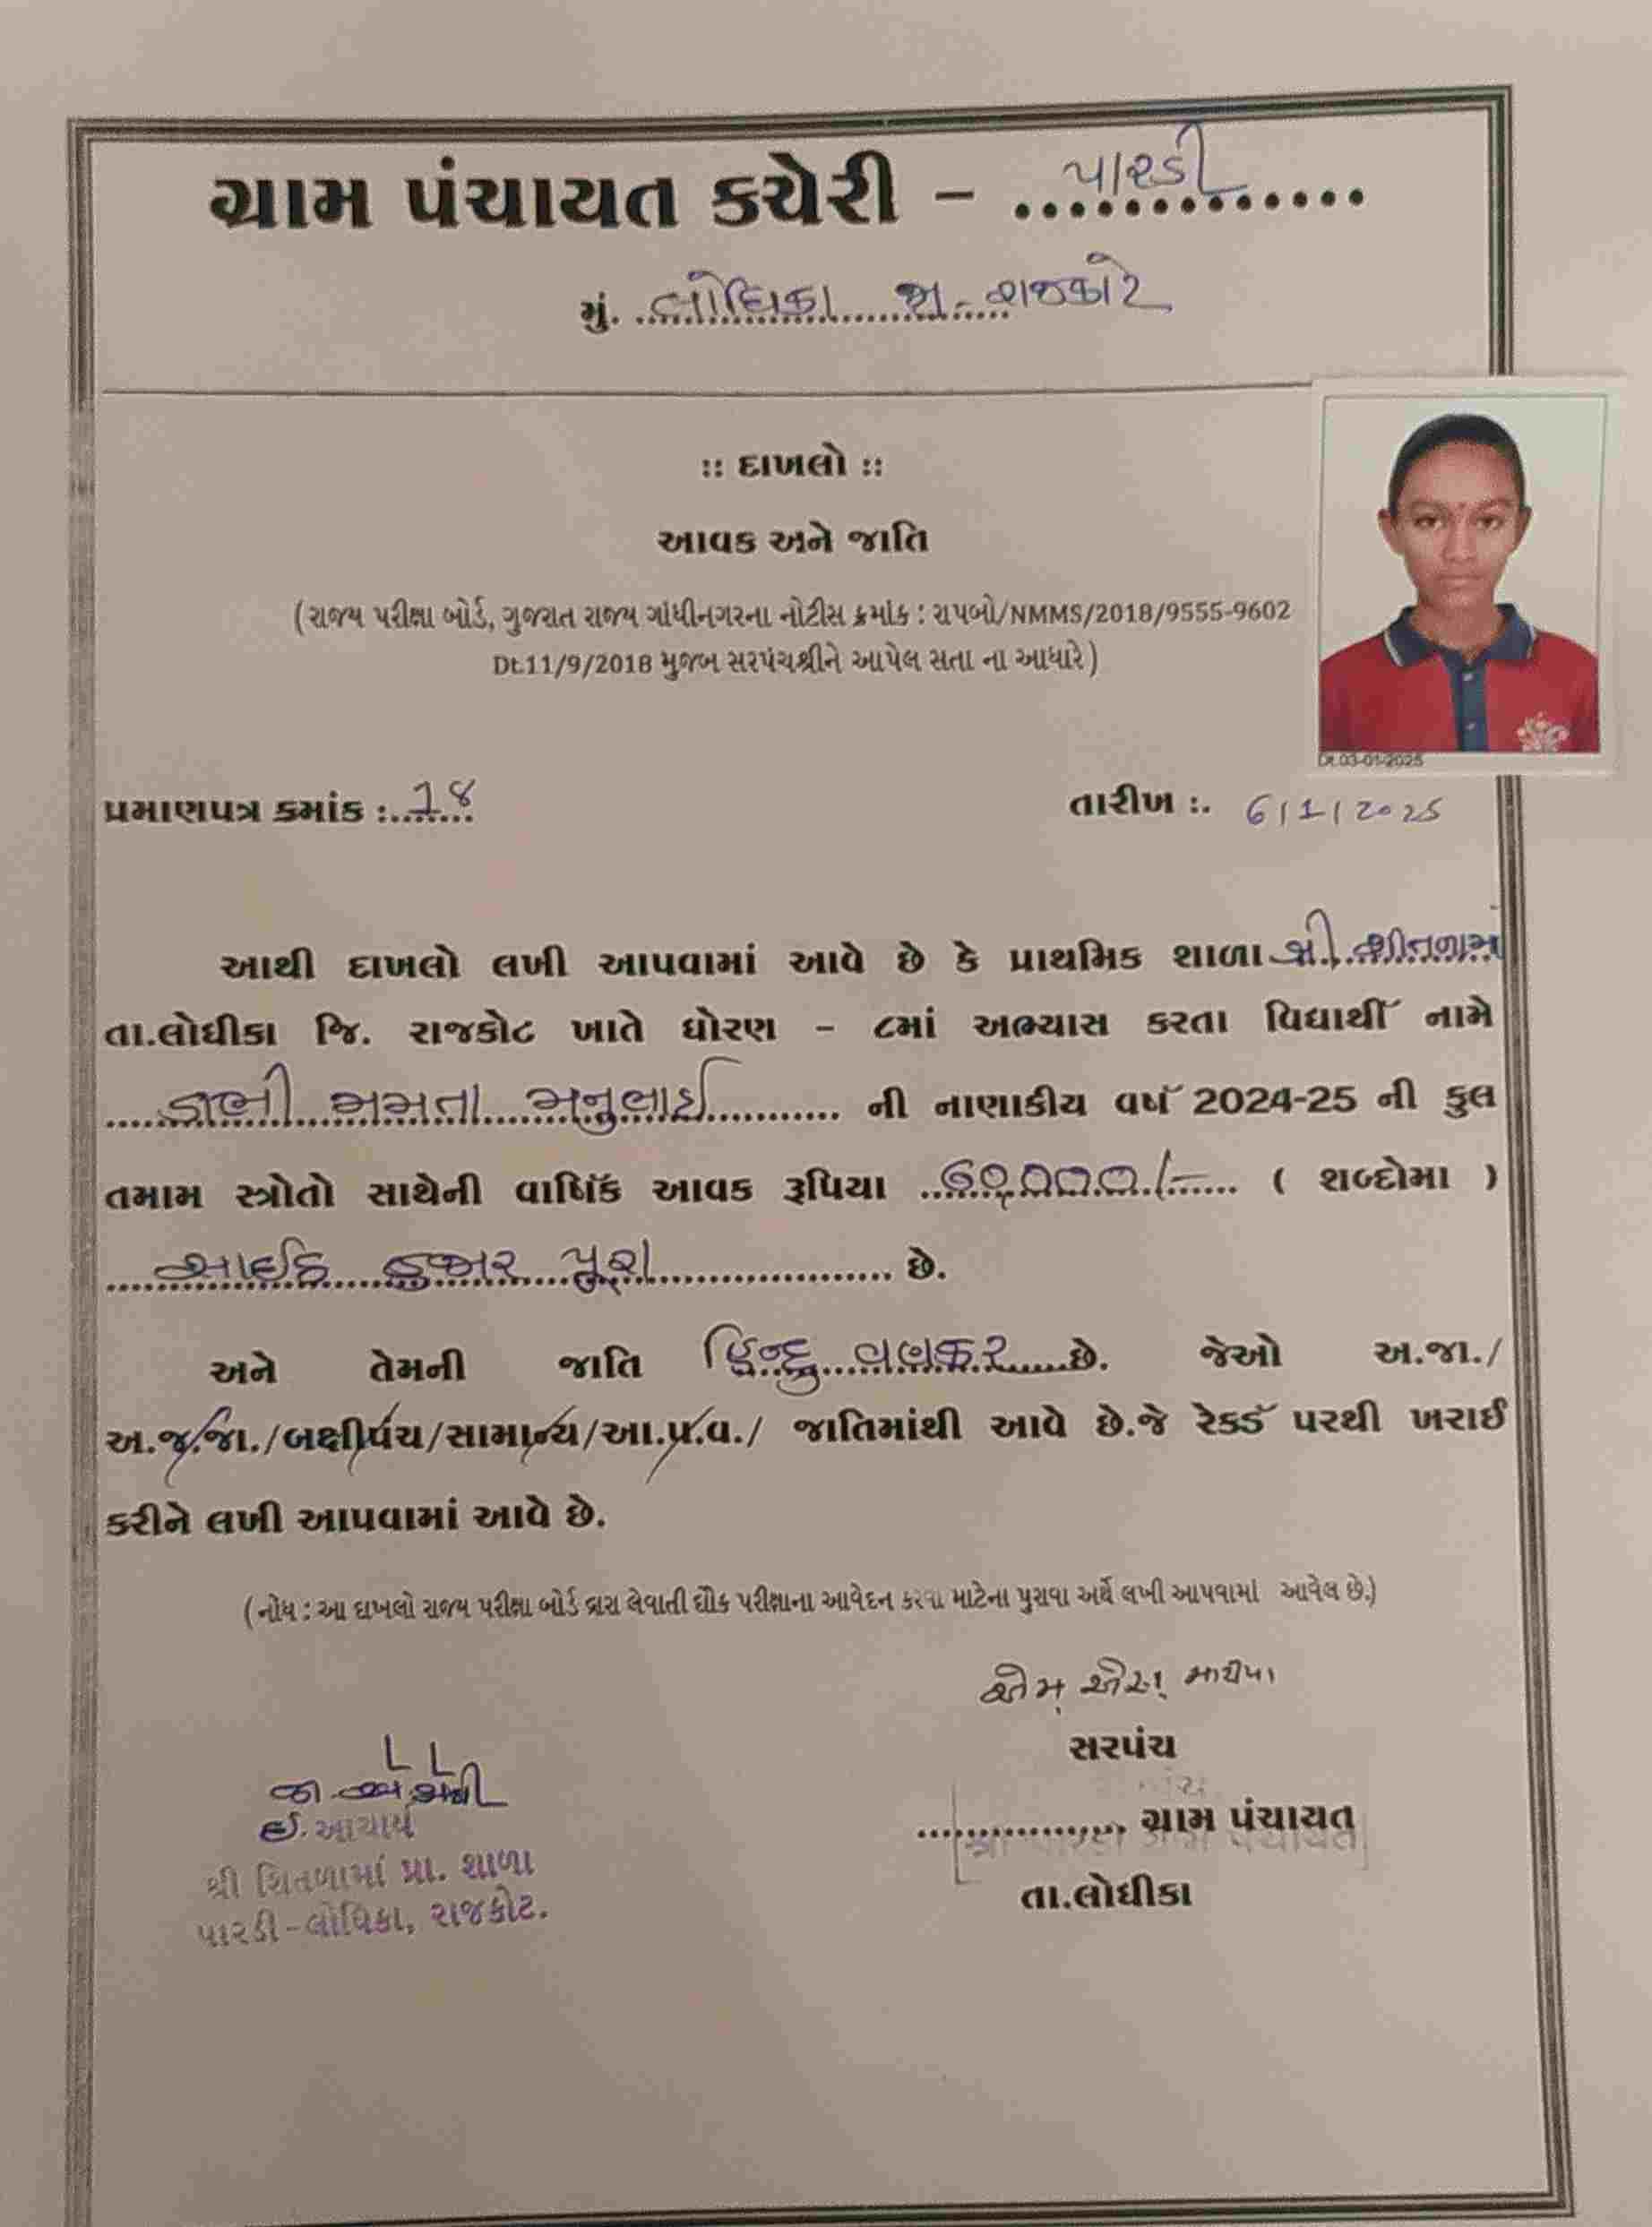 ગ્રામ પંચાયત કચેરી – પારડી
મું. લોધિકા જી.-રાજકોટ
:: દાખલો ::
આવક અને જાતિ
(રાજ્ય પરીક્ષા બોર્ડ, ગુજરાત રાજ્ય ગાંધીનગરના નોટીસ ક્રમાંક : રાપબો/NMMS/2018/9555-9602
Dt.11/9/2018 મુજબ સરપંચશ્રીને આપેલ સતા ના આધારે)
Dt.03-01-2025
પ્રમાણપત્ર ક્રમાંક :. 18
તારીખ :. 6/1/2025
આથી દાખલો લખી આપવામાં આવે છે કે પ્રાથમિક શાળા શ્રી
તા.લોધીકા જિ. રાજકોટ ખાતે ધોરણ – ૮માં અભ્યાસ કરતા વિદ્યાર્થી નામે
ડાભી મમતા મનુભાઈ ની નાણાકીય વર્ષ 2024-25 ની કુલ
તમામ સ્ત્રોતો સાથેની વાર્ષિક આવક રૂપિયા ૬૦,૦૦૦/- ( શબ્દોમા )
સાઈઠ હજાર પુરા છે.
અને તેમની જાતિ હિન્દુ વણકર છે. જેઓ અ.જા./
અ.જ.જા./બક્ષીપંચ/સામાન્ય/આ.પ્ર.વ./ જાતિમાંથી આવે છે.જે રેકર્ડ પરથી ખરાઈ
કરીને લખી આપવામાં આવે છે.
(નોંધ : આ દાખલો રાજ્ય પરીક્ષા બોર્ડ દ્વારા લેવાતી શૈક્ષ પરીક્ષાના આવેદન કરવા માટેના પુરાવા અર્થે લખી આપવામાં આવેલ છે.)
એમ એસ
સરપંચ
ગ્રામ પંચાયત
શ્રી પારડી ગ્રામ પંચાયત
તા.લોધીકા
ઈ. આચાર્ય
શ્રી શિતળામાં પ્રા. શાળા
પારડી-લોધિકા, રાજકોટ.